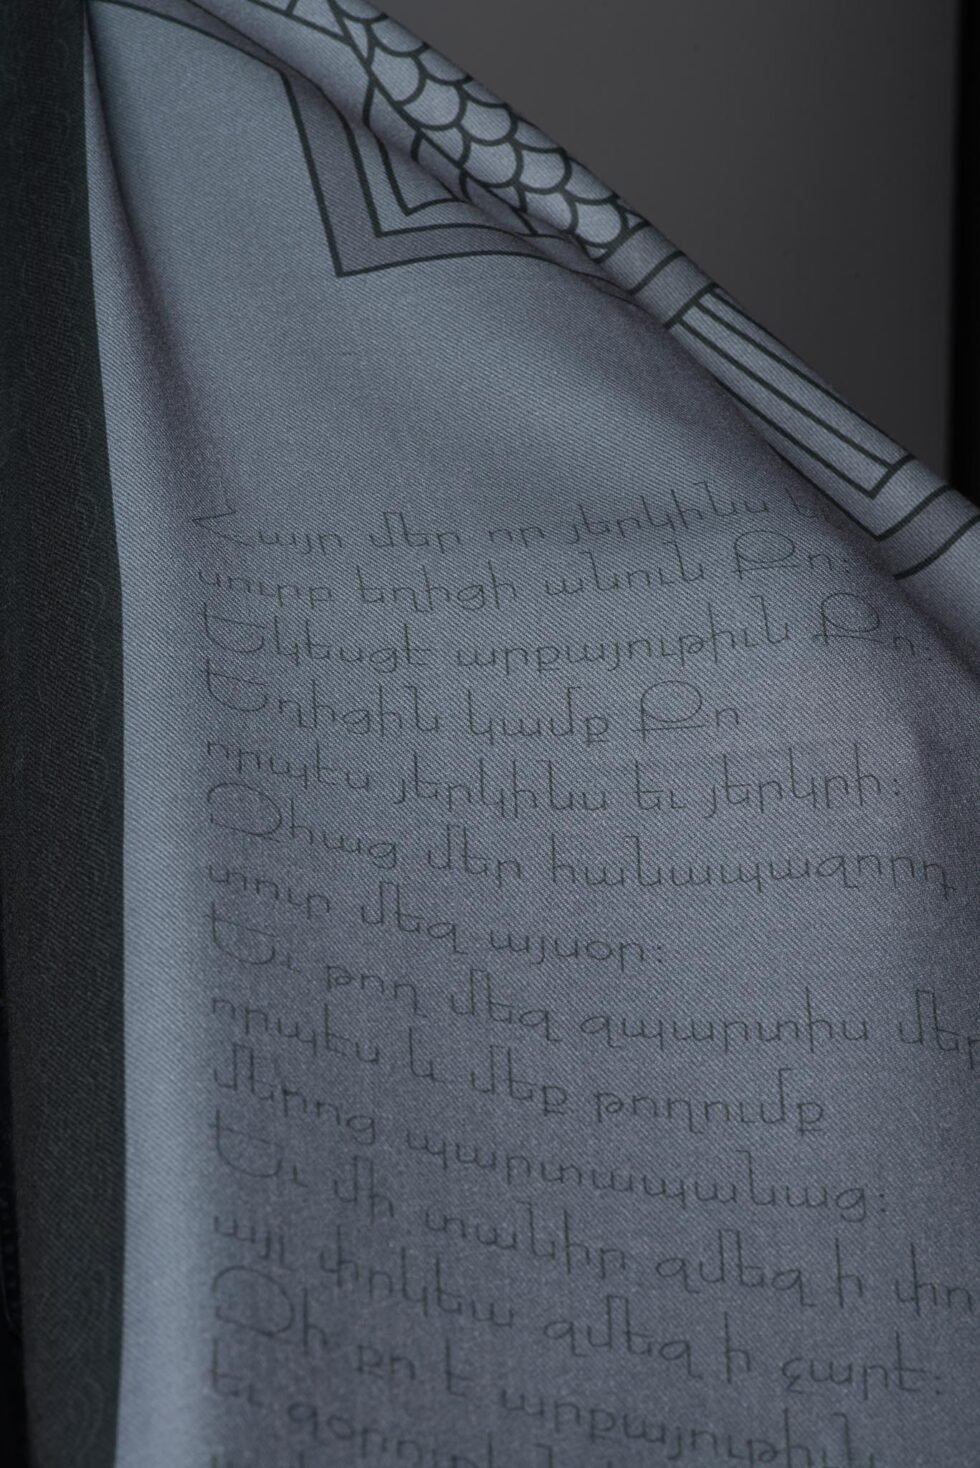 Հայր մեր որ յերկինս
սուրբ եղիցի անուն Քո:
Եկեսցէ արքայութիւն Քո:
Եղիցին կամք Քո
որպէս յերկինս եւ յերկրի:
Զհաց մեր հանապազորդ
տուր մեզ այսօր:
Եւ թող մեզ զպարտիս մեր
որպէս և մեք թողումք
մերոց պարտապանաց:
Եւ մի տանիր զմեզ ի
այլ փրկեա զմեզ ի չարէ:
Զի քո է արքայութիւն
եւ